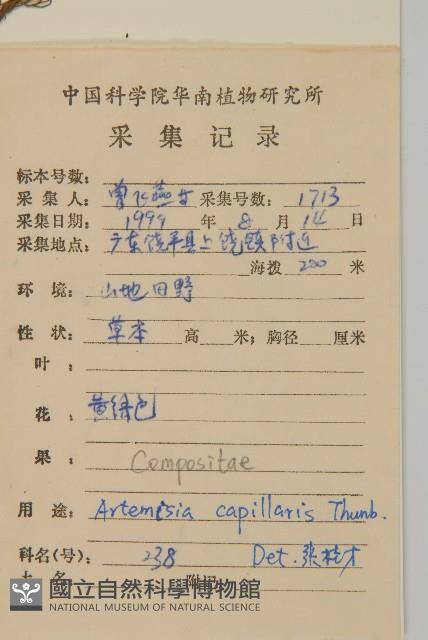 中国科学院华南植物研究所
采集记录
标本号数：
采集人：曾飞燕 采集号数：1713
采集日期：1999 年 8 月 14 日
采集地点：广东饶平县上饶镇附近
海拨 200 米
环境：山地田野
性状：草本 高 米；胸径 厘米
叶：
花：黄绿色
果：
Compositae
用途：Artemisia capillaris Thunb.
科名(号)：238 Det. 张桂才
國立自然科學博物館
NATIONAL MUSEUM OF NATURAL SCIENCE